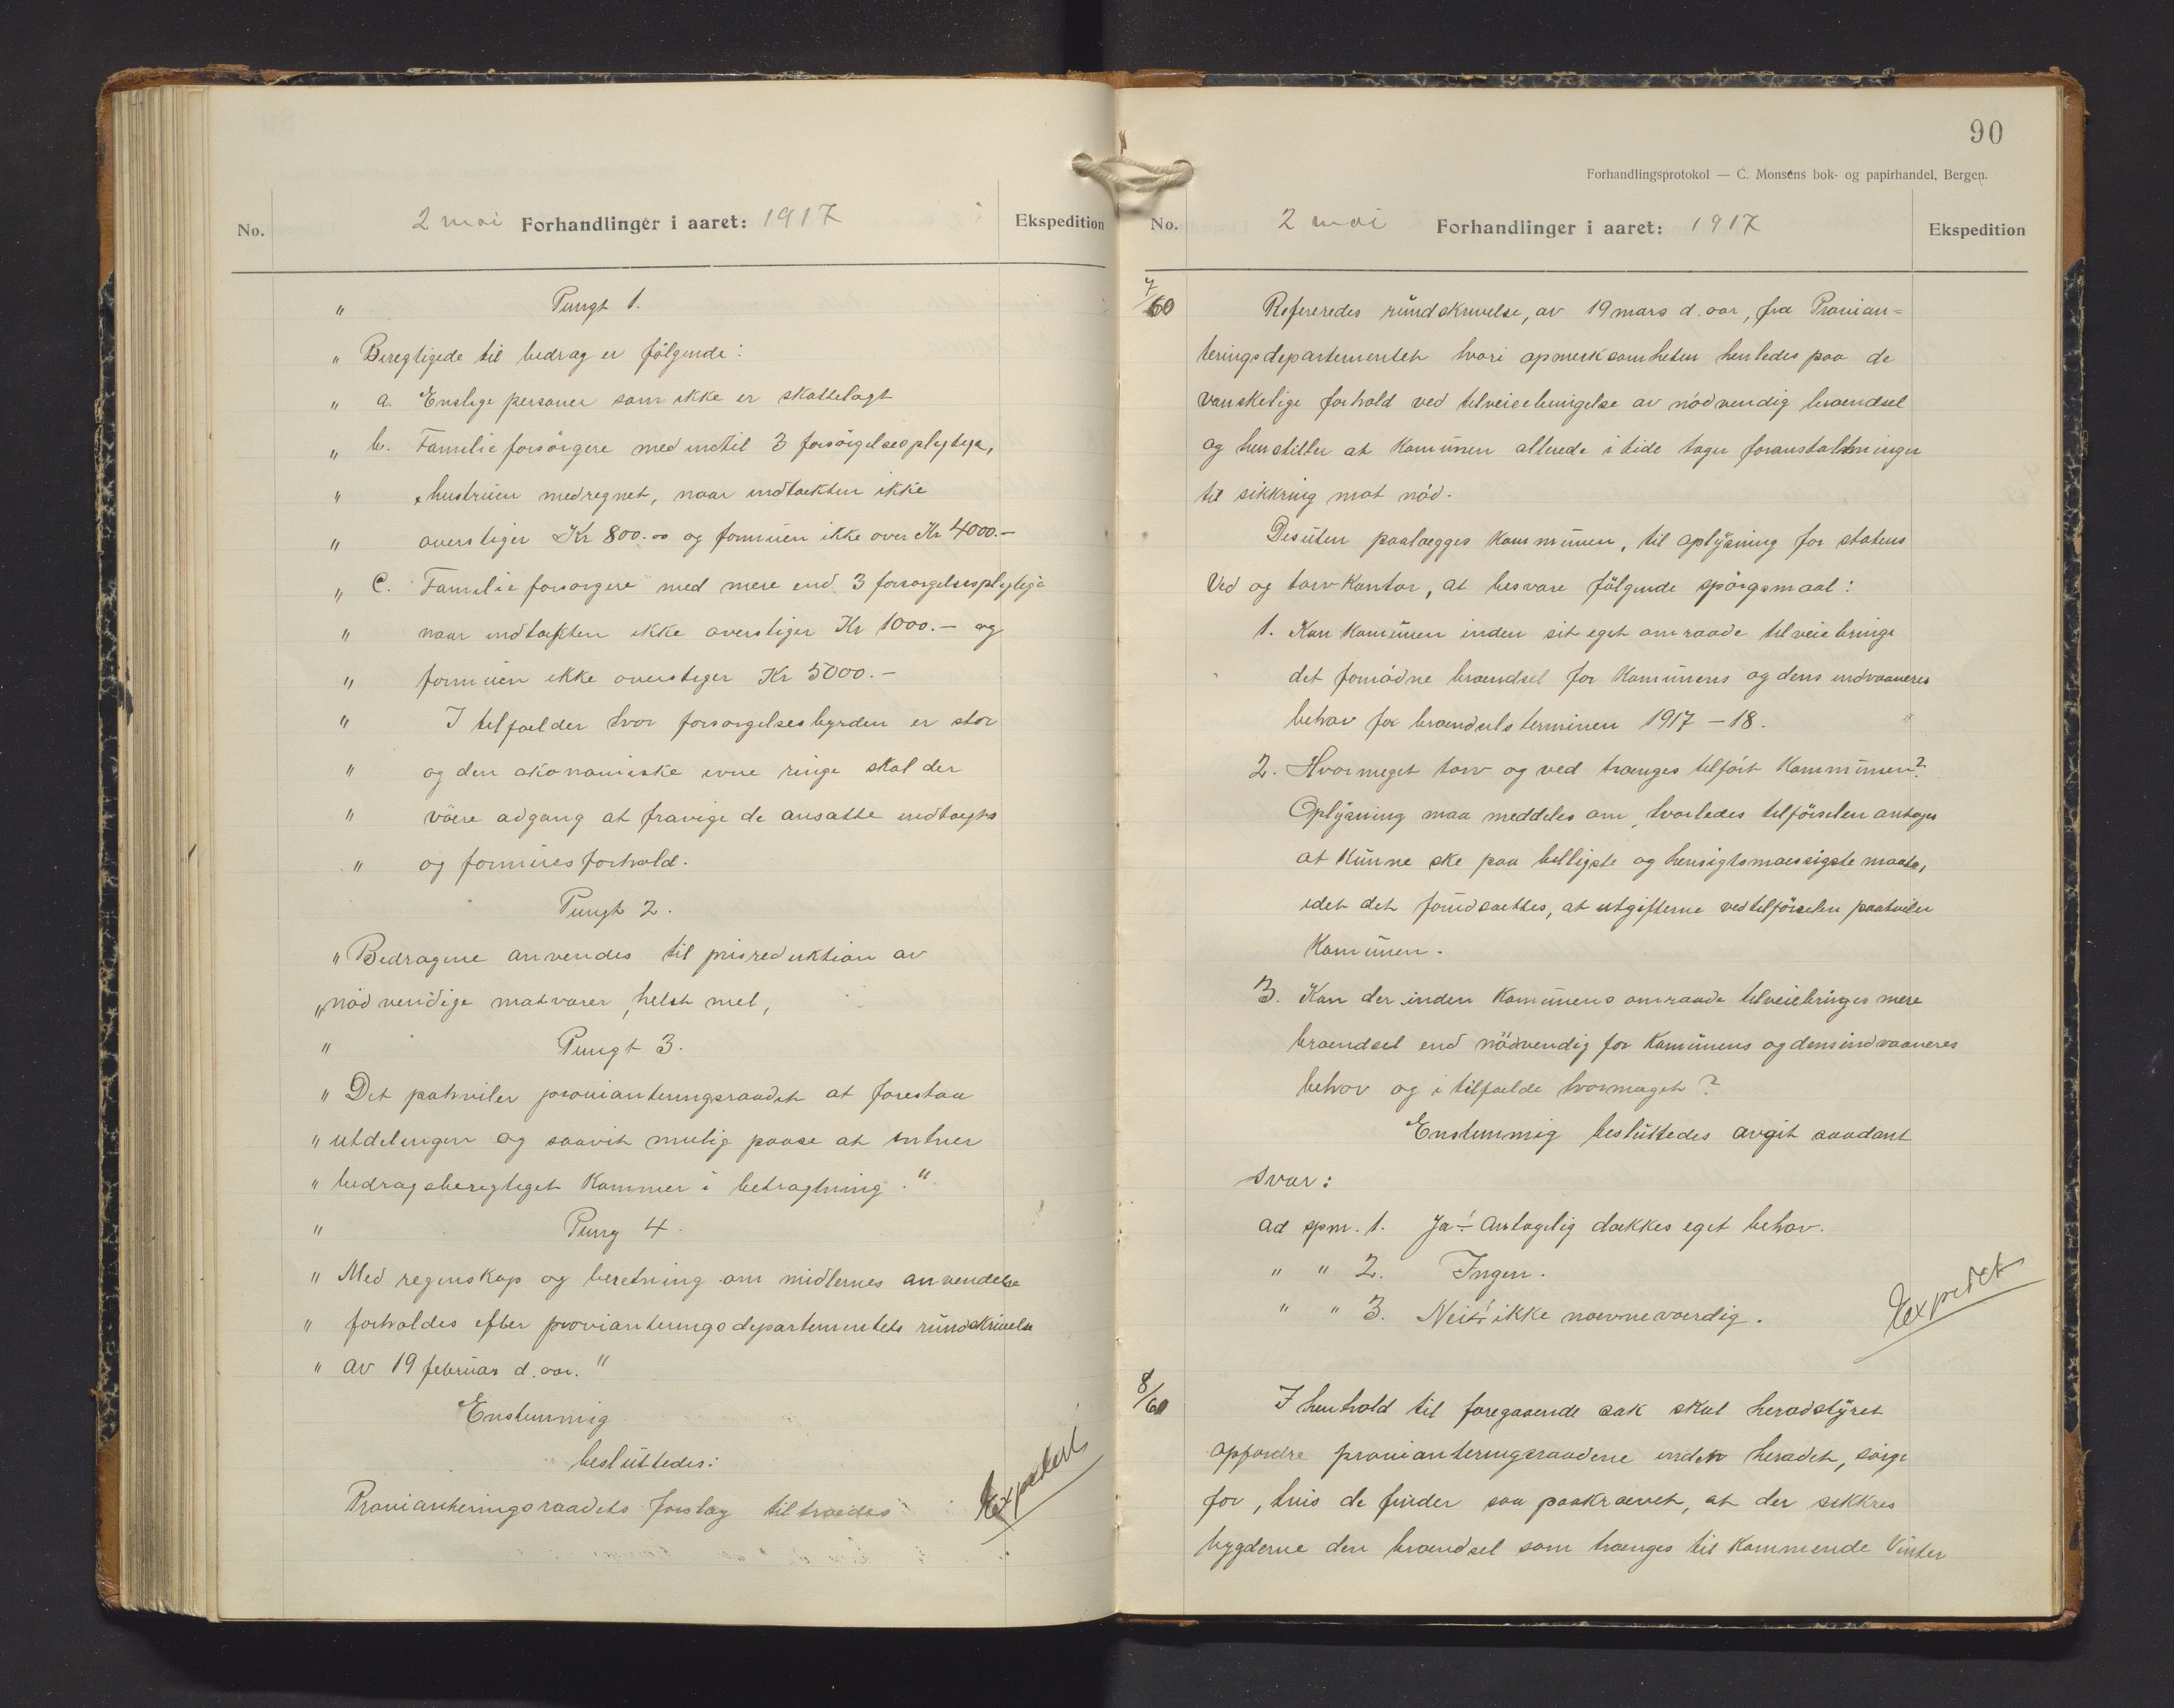 No.
2 mai Forhandlinger i aaret: 1917
Ekspedition
" Pungt 1.
" Beregtigede til bedrag er følgende:
" a. Enslige personer som ikke er skattelagt
" b. Familieforsørgere med indtil 3 forsørgelsesplygtige,
" hustruen medregnet, naar indtækten ikke
" overstiger Kr 800.00 og formuen ikke over Kr 4000.-
" C. Familieforsørgere med mere end 3 forsørgelsesplygtige
" naar indtækten ikke overstiger Kr 1000.- og
" formuen ikke overstiger Kr 5000.-
" I tilfælder hvor forsørgelsesbyrden er stor
" og den økonomiske evne ringe skal der
" være adgang at fravige de ansatte indtægts
" og formuesforhold.
Pungt 2.
" Bedragene anvendes til prisreduktion av
" nødvendige matvarer, helst mel,
" Pungt 3.
" Det pahviler provianteringsraadet at forestaa
" utdelingen og saavit mulig paase at enhver
" bedragsberegtiget kommer i betragtning."
" Pung 4.
" Med regnskap og beretning om midlernes anvendelse
" forholdes efter provianteringsdepartementets rundskrivelse
" av 19 februar d. aar."
Enstemmig
besluttedes:
Provianteringsraadets forslag tiltrædes
Expedert
90
Forhandlingsprotokol — C. Monsens bok- og papirhandel, Bergen.
No.
2 mai Forhandlinger i aaret: 1917
Ekspedition
7/60 Refereredes rundskrivelse, av 19 mars d. aar, fra Provian=
teringsdepartementet hvori opmerksomheten henledes paa de
vanskelige forhold ved tilveiebringelse av nødvendig brændsel
og henstiller at Komunen allerede i tide tager foranstaltninger
til sikkring mot nød.
Desuten paalægges kommunen, til oplysning for statens
Ved og torvkontor, at besvare følgende spørgsmaal:
1. Kan Komunen inden sit eget omraade tilveiebringe
det fornødne brændsel for Komunens og dens indvaaneres
behov for brændselsterminen 1917 - 18.
2. Hvormeget torv og ved trænges tilført Kommunen?
Oplysning maa meddeles om, hvorledes tilførselen antages
at kunne ske paa billigste og hensigtsmæssigste maate,
idet det forudsættes, at utgifterne ved tilførselen paahviler
Komunen.
3. Kan der inden Komunens omraade tilveiebringes mere
brændsel end nødvendig for Komunens og dens indvaaneres
behov og i tilfælde hvormeget?
Enstemmig besluttedes avgit saadant
svar:
ad spm. 1. Ja! Antagelig dækkes eget behov.
" " 2. Ingen.
" " 3. Nei! ikke nævneværdig.
Expedert
8/60 I henhold til foregaaende sak skal heradstyret
opfordre provianteringsraadene inden heradet, sørge
for, hvis de finder saa paakrævet, at der sikkres
bygderne den brændsel som trænges til kommende Vinter